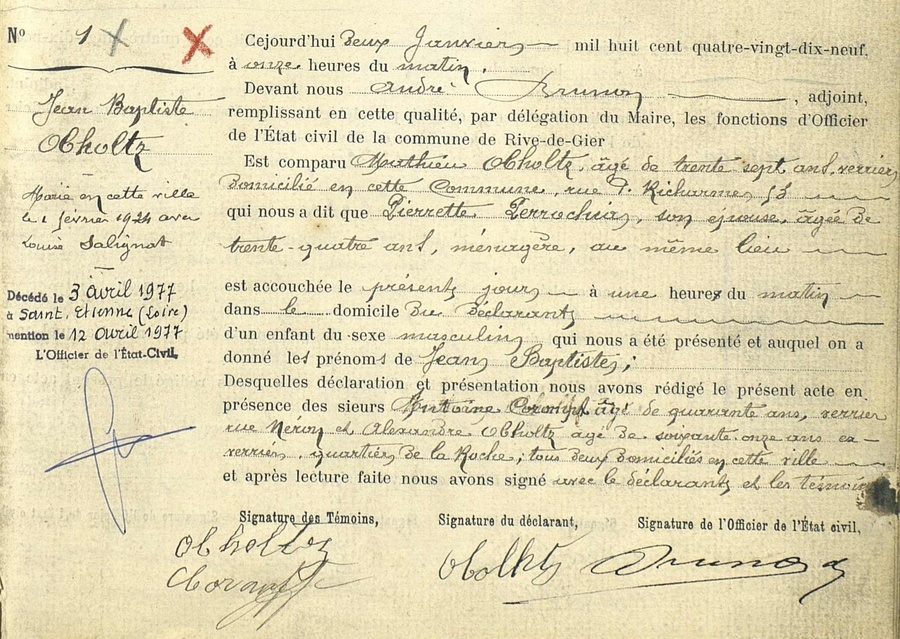 N° 1
Jean Baptiste
Obholtz
Marié en cette ville
le 1 février 1924 avec
Louise Salignat
Décédé le 3 avril 1977
à Saint. Etienne (Loire)
mention le 12 avril 1977
L'Officier de l'État-Civil,
Cejourd'hui Deux Janvier mil huit cent quatre-vingt-dix-neuf,
à onze heures du matin.
Devant nous André Brunon, adjoint,
remplissant en cette qualité, par délégation du Maire, les fonctions d'Officier
de l'État civil de la commune de Rive-de-Gier
Est comparu Mathieu Obholtz, âgé de trente sept ans, verrier
Domicilié en cette Commune, rue P. Richarme, 53
qui nous a dit que Pierrette, son épouse, âgée de
trente-quatre ans, ménagère, au même lieu
est accouchée le présent jour à une heures du matin
dans le domicile Du Déclarant
d'un enfant du sexe masculin, qui nous a été présenté et auquel on a
donné les prénoms de Jean Baptiste;
Desquelles déclaration et présentation nous avons rédigé le présent acte en
présence des sieurs Antoine âgé de quarante ans, verrier
rue Neron et Alexandre Obholtz âgé de soixante onze ans ex-
verrier, quartier de la Roche; tous deux domiciliés en cette ville
et après lecture faite nous avons signé avec le déclarant et les témoins
Signature des Témoins,
Signature du déclarant,
Signature de l'Officier de l'État civil,
Obholtz
Obholtz
Brunon